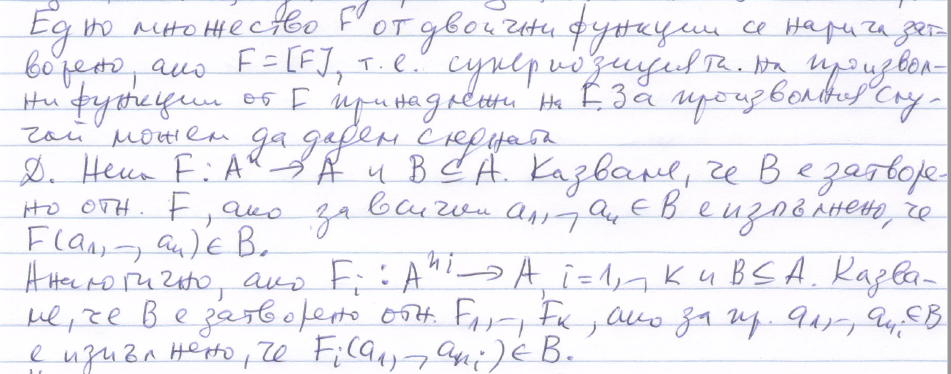 Едно множество F от двоични функции се нарича зат-
ворено, ако F=[F], т.е. суперпозицията на произвол-
ни функции от F принадлежи на F. За произволния слу-
чай можем да дадем следната
D. Нека F: Aⁿ → A и B ⊆ A. Казваме, че B е затворе-
но отн. F, ако за всички a₁,–, aₙ ∈ B е изпълнено, че
F(a₁,–, aₙ) ∈ B.
Аналогично, ако Fᵢ : A^{nᵢ} → A, i=1,–, k и B ⊆ A. Казва-
ме, че B е затворено отн. F₁,–, Fₖ, ако за пр. a₁,–, a_{nᵢ} ∈ B
е изпълнено, че Fᵢ(a₁,–, a_{nᵢ}) ∈ B.